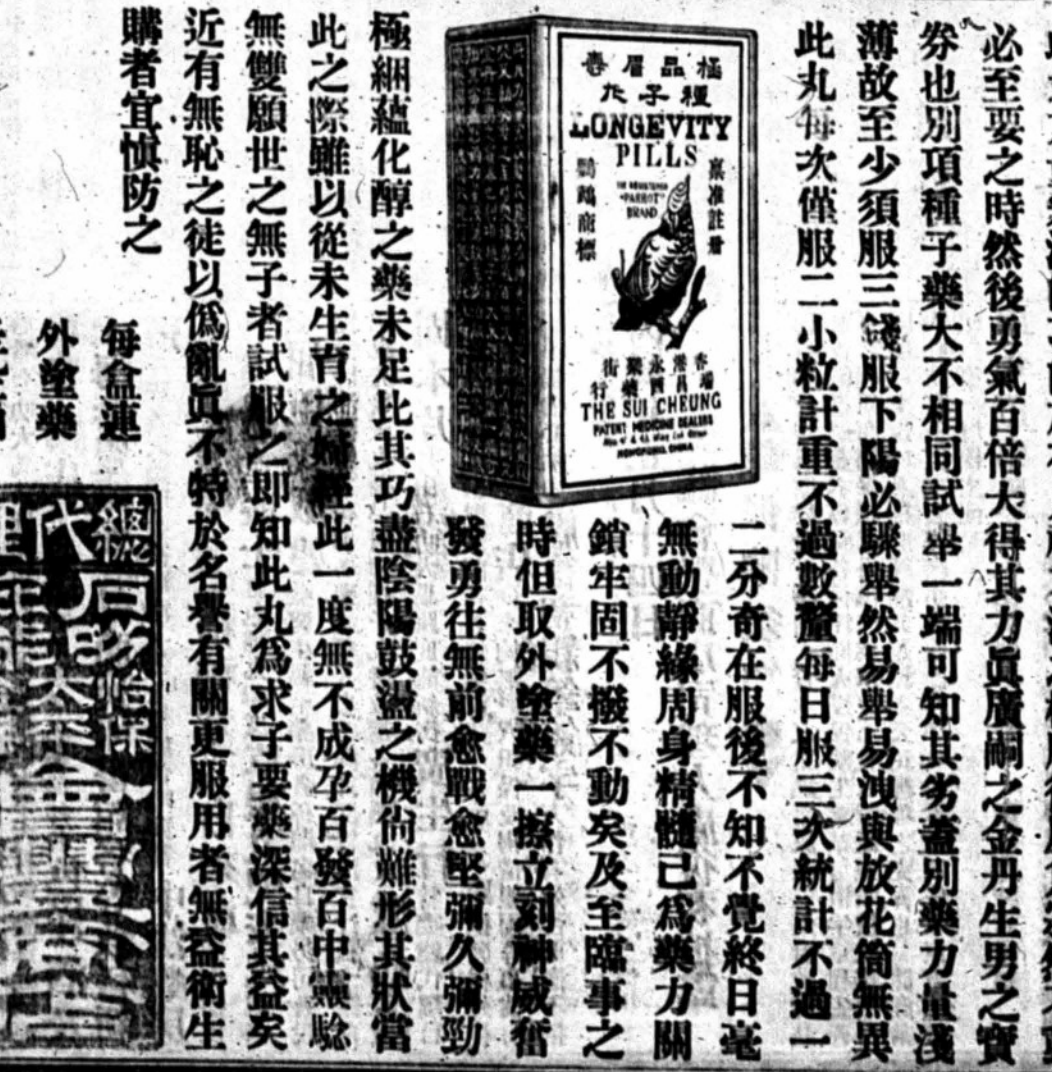 必至要之時然後勇氣百倍大得其力眞廣嗣之金丹生男之寶
券也別項種子藥大不相同試舉一端可知其劣蓋別藥力量淺
薄故至少須服三錢服下陽必驟舉然易舉易洩與放花筒無異
此丸每次僅服二小粒計重不過數釐每日服三次統計不過一
二分奇在服後不知不覺終日毫
無動靜緣周身精髓己爲藥力關
鎖牢固不撥不動矣及至臨事之
時但取外塗藥一擦立刻神威奮
發勇往無前愈戰愈堅彌久彌勁
極絪蘊化醇之藥未足比其巧盡陰陽鼓盪之機尙難形其狀當
此之際雖以從未生育之婦經此一度無不成孕百發百中靈驗
無雙願世之無子者試服之即知此丸爲求子要藥深信其益矣
近有無恥之徒以僞亂眞不特於名譽有關更服用者無益衛生
購者宜慎防之
極品眉壽
種子丸
LONGEVITY
PILLS
稟准註册
THE REGISTERED
"PARROT"
BRAND
鸚鵡商標
香港永樂街
瑞昌西藥行
THE SUI CHEUNG
PATENT MEDICINE DEALERS
HONGKONG, CHINA
每盒連
外塗藥
總代理